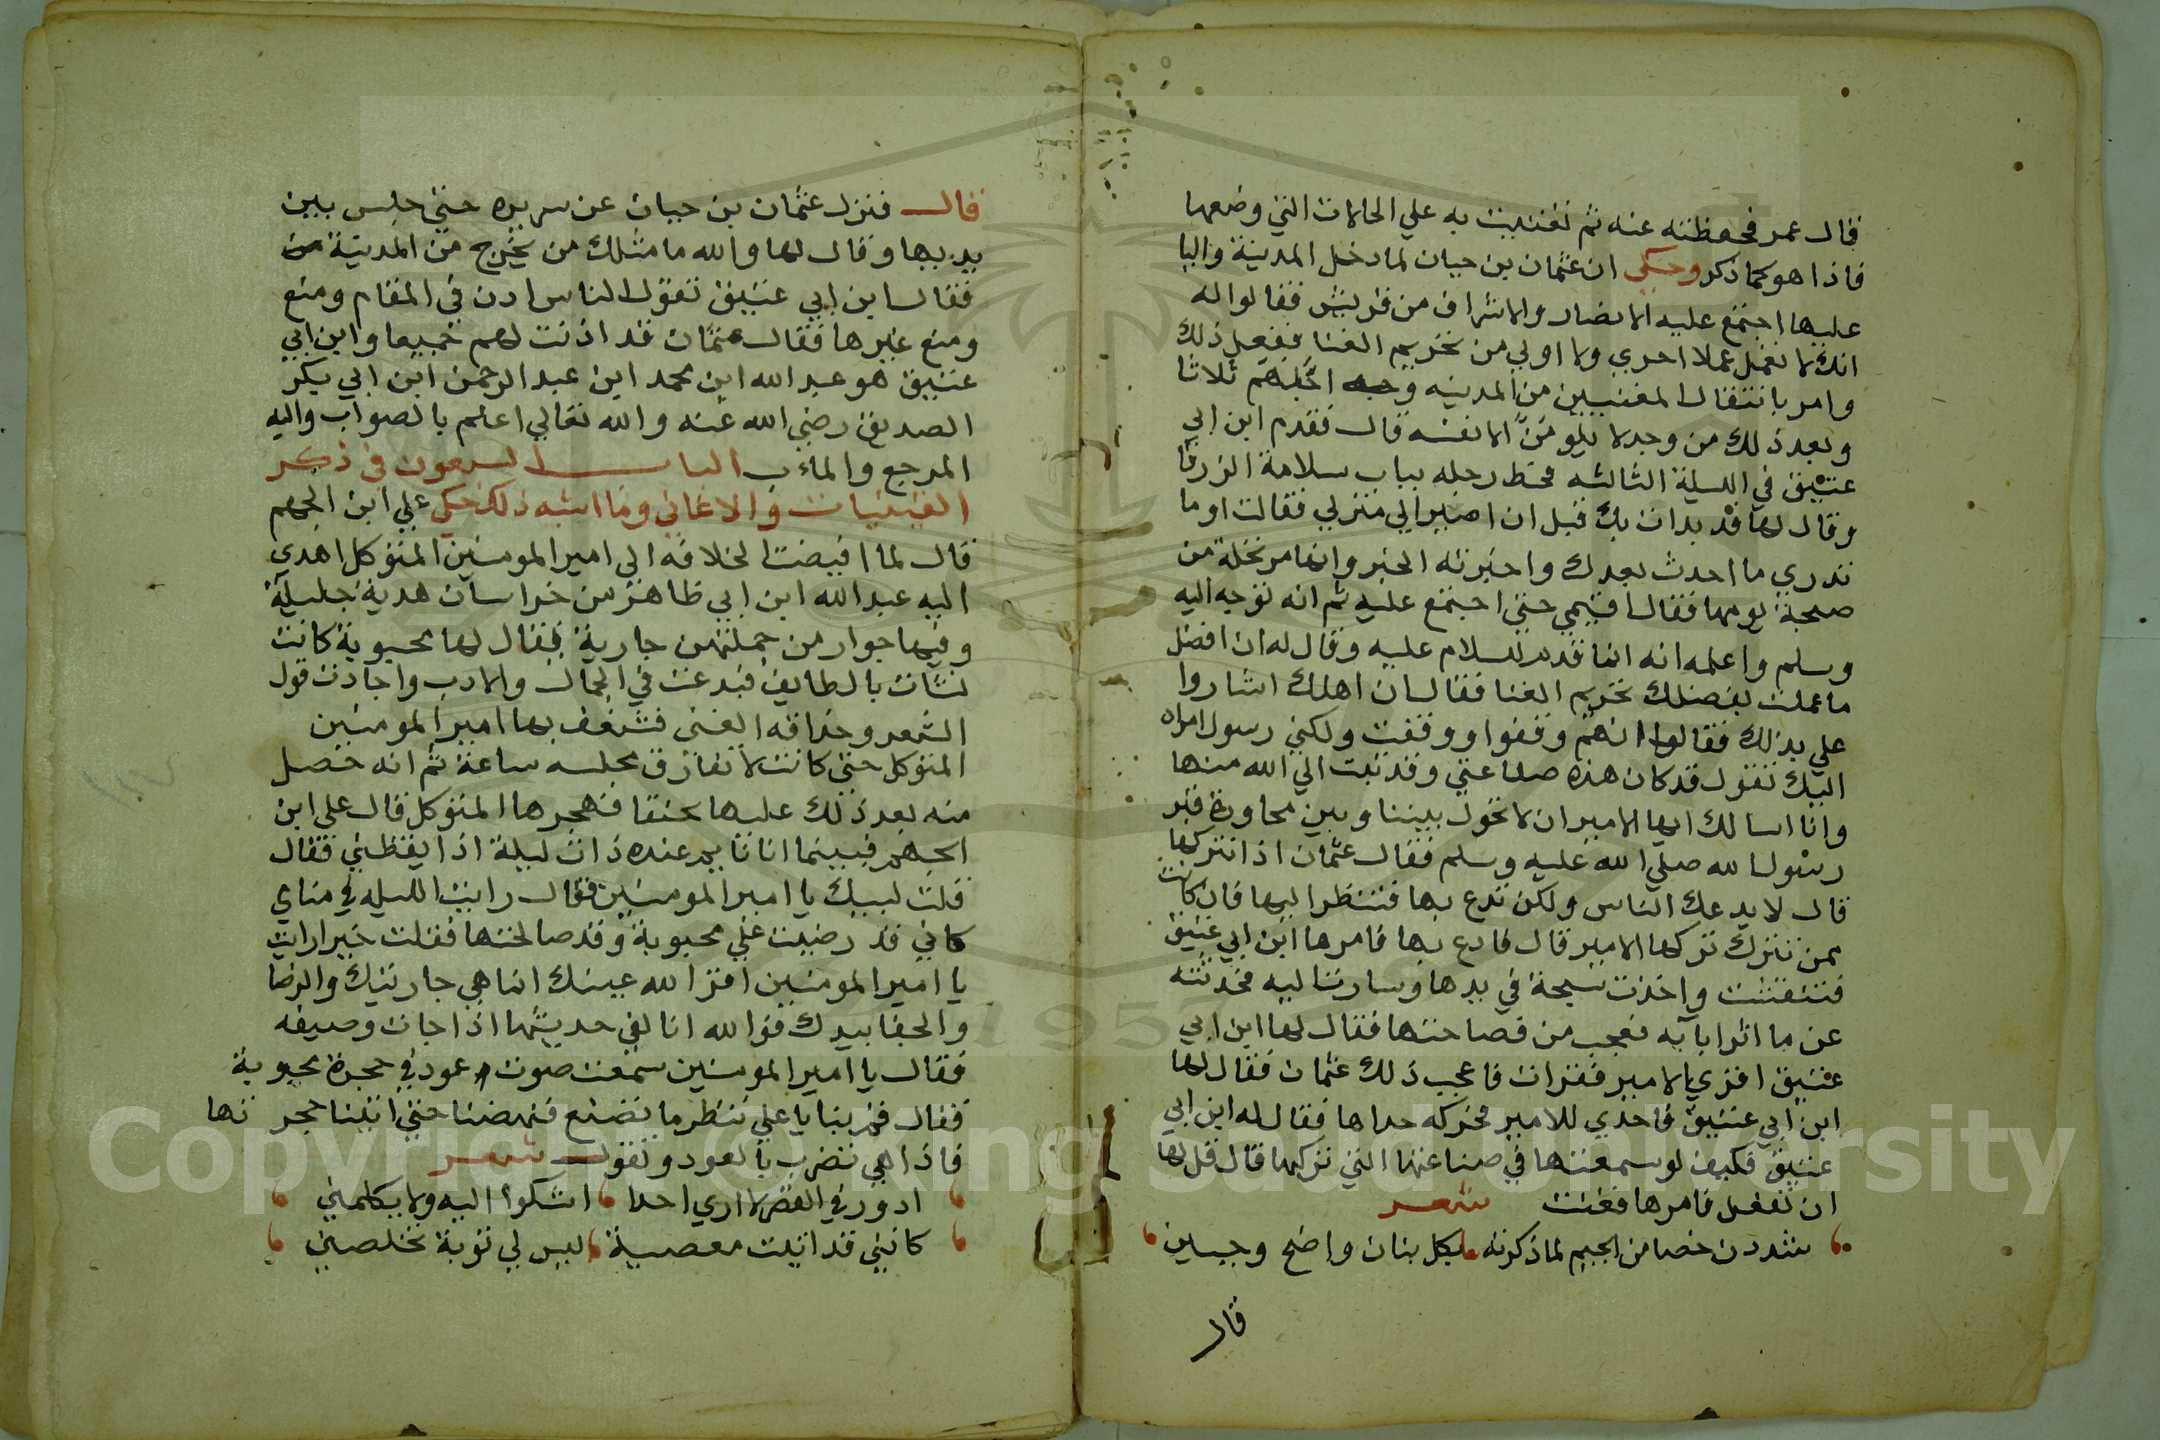 قال عمر فحفظته عنه ثم تغنيت به علي الحالات التي وضعها
فاذا هو كما ذكر وحكي ان عثمان بن حيان لما دخل المدينة واليا
عليها اجتمع عليه الانصار والاشراف من قريش فقالوا له
انك لا تعمل عملا احري ولا اولي من تحريم الغنا ففعل ذلك
وامر بانتقال المغنيين من المدينه اجلهم ثلاثا
وبعد ذلك من وجد لا يلومن الا نفسه قال فقدم ابن ابي
عتيق في الليلة الثالثه فحط رحله بباب سلامة الزرقا
وقال لها قد بدات بك قبل ان اصير الي منزلي فقالت اوما
تدري ما احدث بعدك واخبرته الخبر وانها مرتحلة من
صبحة يومها فقال اقيمي حتي اجتمع عليه ثم انه توجه اليه
وسلم واعلمه انه انما قدم للسلام عليه وقال له ان افضل
ما عملت بفضلك تحريم الغنا فقال ان اهلك اشاروا
علي بذلك فقال انهم وفقوا ووفقت ولكني رسول امراه
اليك تقول قد كان هذه صناعتي وقد تبت الي الله منها
وانا اسالك ايها الامير ان لا تحول بيننا وبين مجاورة قبر
رسول الله صلي الله عليه وسلم فقال عثمان اذا نتركها
قال لا يدعك الناس ولكن تدع بها فتنظر اليها فان كانت
ممن تترك تركها الامير قال فادع بها فامرها ابن ابي عتيق
فتقشفت واخذت سبحة في يدها وسارت اليه فحدثته
عن ماثر ابايه فعجب من فصاحتها فقال لها ابن ابي
عتيق اقري للامير فقرات فاعجب ذلك عثمان فقال لها
ابن ابي عتيق فاحدي للامير فحركه حداها فقال له ابن ابي
عتيق فكيف لو سمعتها في صناعتها التي تركتها قال قل لها
ان تفعل فامرها فغنت شعر
شددن خصاص الخيم لما ذكرنه بكل بنان واضح وجبين
قال
قال فنزل عثمان بن حيان عن سريره حتي جلس بين
يديها وقال لها والله ما مثلك من يخرج من المدينة
فقال ابن ابي عتيق تقول الناس اذن في المقام ومنع
ومنع غيرها فقال عثمان قد اذنت لهم جميعا وابن ابي
عتيق هو عبد الله ابن محمد ابن عبد الرحمن ابن ابي بكر
الصديق رضي الله عنه والله تعالي اعلم بالصواب واليه
المرجع والماءب الباب السبعون في ذكر
القينيات والاغاني وما اشبه ذلك حكي علي ابن الجهم
قال لما افيضت الخلافه الى امير المومنين المتوكل اهدي
اليه عبد الله ابن ابي طاهر من خراسان هدية جليلة
وفيها جوار من جملتهن جارية يقال لها محبوبة كانت
نشات بالطايف فبدعت في الجمال والادب واجادت قول
الشعر وحذاقه الغني فشغف بها امير المومنين
المتوكل حتي كانت لا تفارق مجلسه ساعة ثم انه حصل
منه بعد ذلك عليها فهجرها المتوكل قال علي ابن
الجهم فبينما انا نايم عنده ذات ليلة اذ ايقظني فقال
قلت لبيك يا امير المومنين فقال رايت الليله في منامي
كاني قد رضيت علي محبوبة وقد صالحتها فقلت خيرا رايت
يا امير المومنين اقر الله عينك انما هي جاريتك والرضا
والجفا بيدك فوالله انا لفي حديثها اذا جات وصيفه
فقال يا امير المومنين سمعت صوت عود في حجرة محبوبة
فقال قم بنا يا علي ننظر ما تصنع فنهضنا حتي اتينا حجرتها
فاذا هي تضرب بالعود وتقول شعر
ادور في القصر لا اري احدا اشكوا اليه ولا يكلمني
كانني قد اتيت معصية ليس لي توبة تخلصني
Copyright © King Saud University